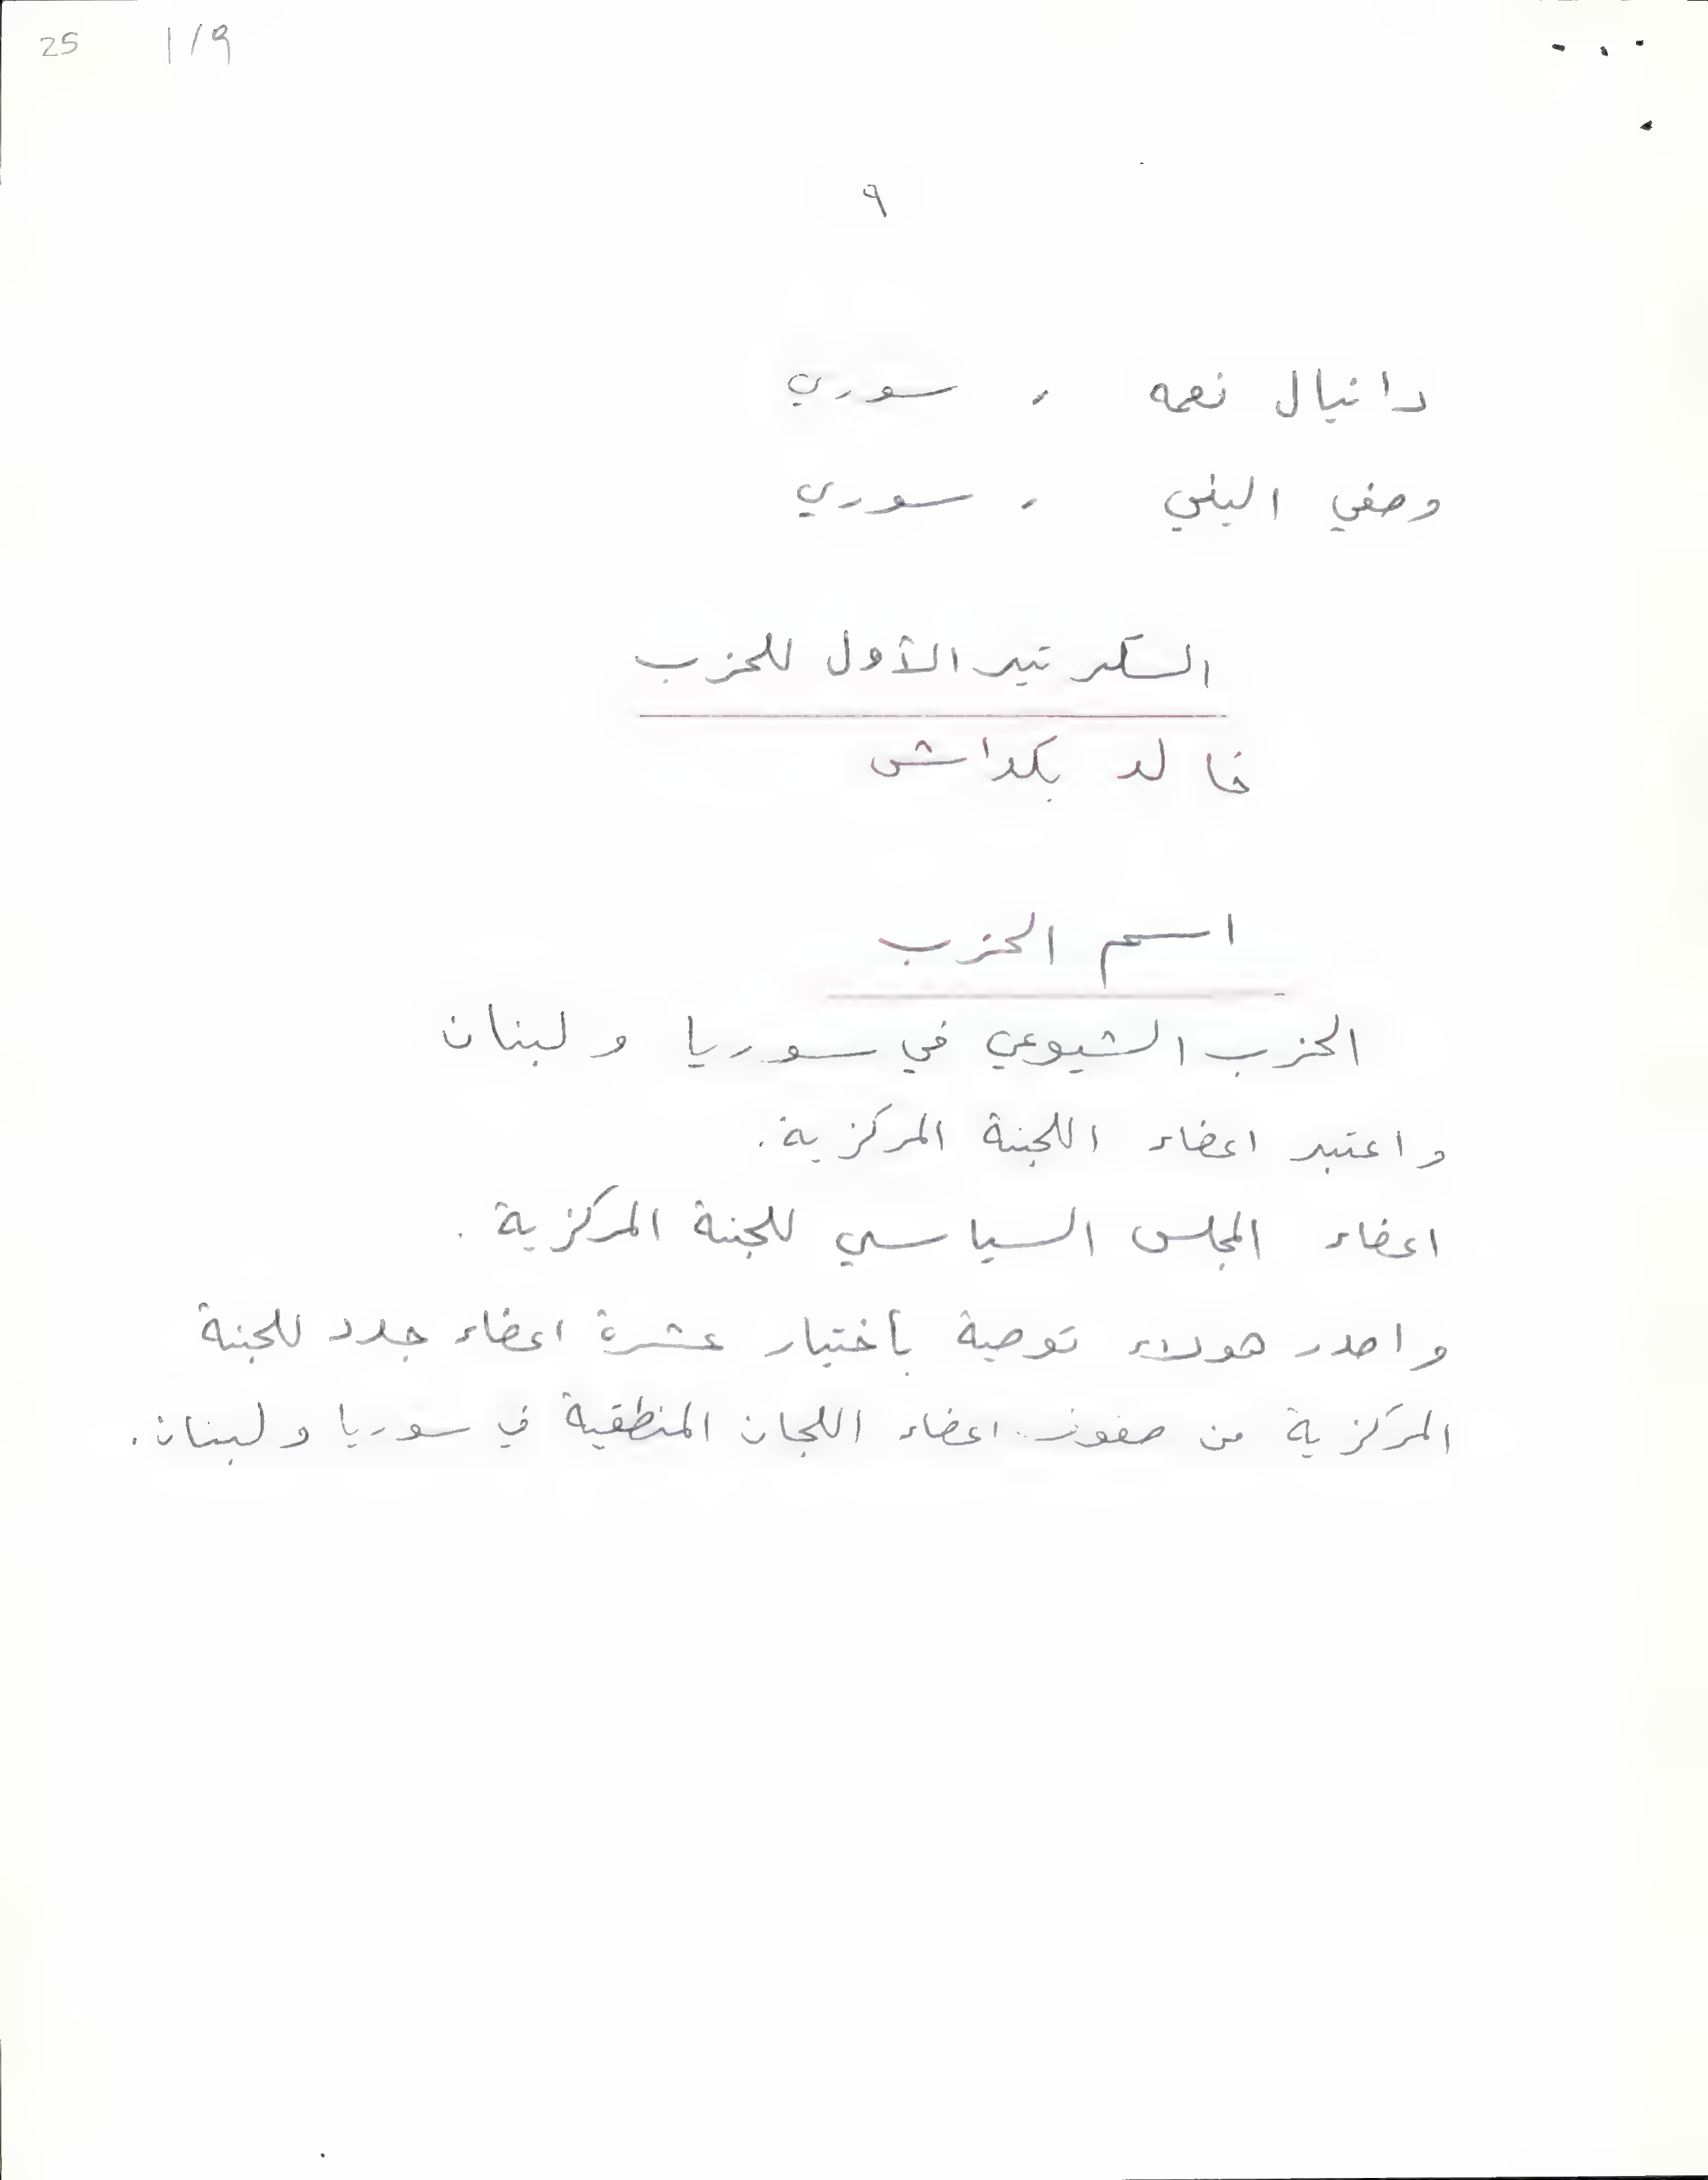 25 1/9
٩
دانيال نعمه ، سوري
وصفي البني ، سوري
السكرتير الأول للحزب
خالد بكداش
اسم الحزب
الحزب الشيوعي في سوريا ولبنان
واعتبر اعضاء اللجنة المركزية.
اعضاء المجلس السياسي للجنة المركزية .
واصدر هولاء توصية بأختيار عشرة اعضاء جدد للجنة
المركزية من صفوف اعضاء اللجان المنطقية في سوريا ولبنان.